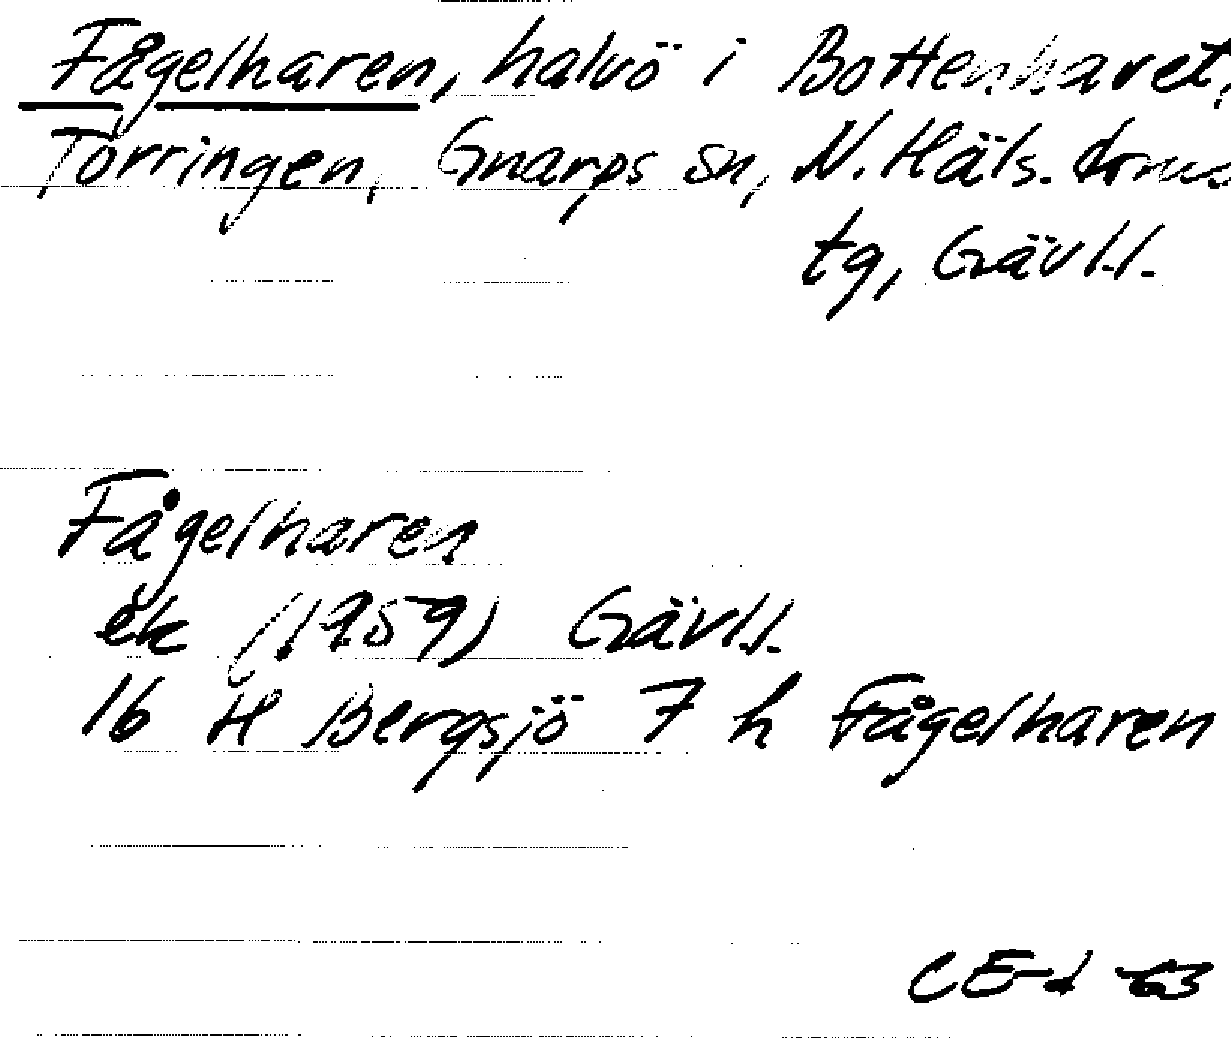 Fågelharen, halvö i Bottenhavet,
Torringen, Gnarps sn, N. Häls. doms
tg, Gävl.l.
Fågelharen
ek (1959) Gävl.l.
16 H Bergsjö 7 h Fågelharen
CE-d -63